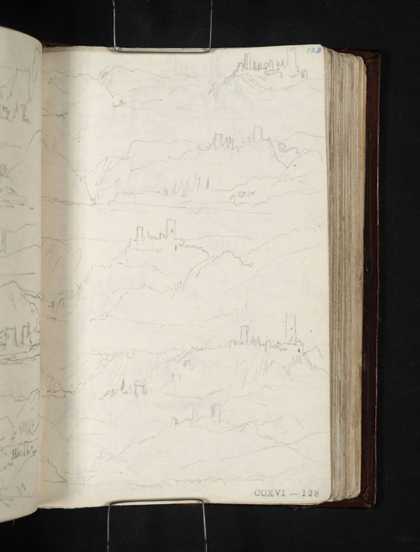 128
CCXVI — 128